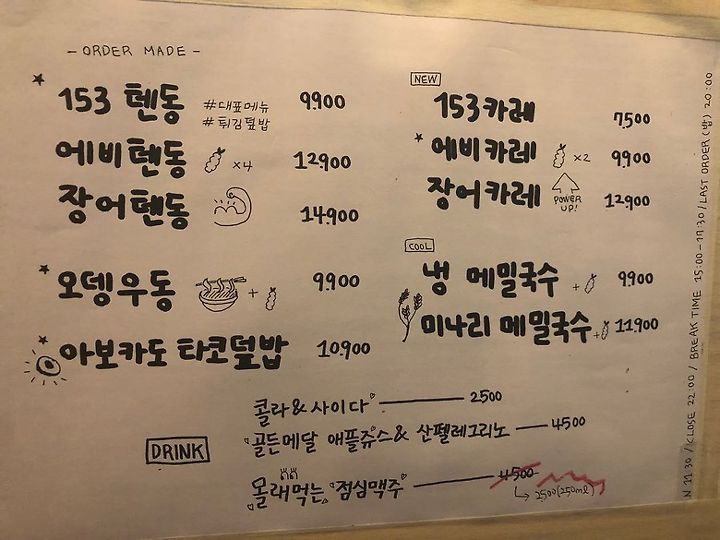 - ORDER MADE -
153 텐동 #대표메뉴 #튀김덮밥 9.900
에비텐동 ×4 12.900
장어텐동 14.900
오뎅우동 + 9.900
아보카도 타코덮밥 10.900
NEW
153카레 7.500
에비카레 ×2 9.900
장어카레 POWER UP! 12.900
COOL
냉 메밀국수 + 9.900
미나리 메밀국수 + 11.900
DRINK
콜라&사이다 2500
골든메달 애플쥬스& 산펠레그리노 4500
몰래먹는 점심맥주 4500
→ 2500(250ml)
N 11:30 / CLOSE 22:00 / BREAK TIME 15:00-17:30 / LAST ORDER (밥) 20:00